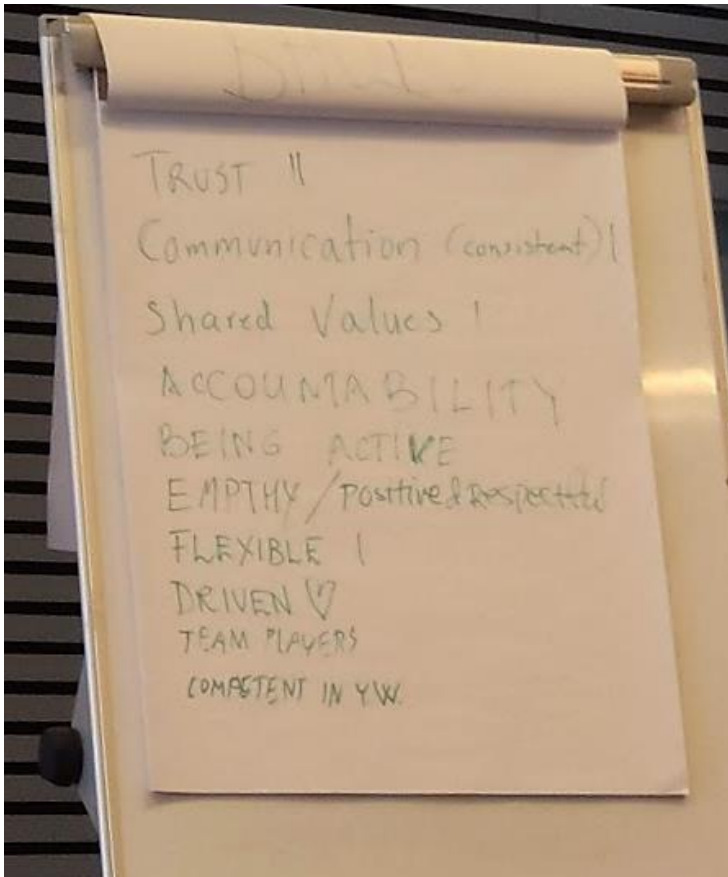 TRUST ||
Communication (consistent) |
Shared Values |
ACCOUNTABILITY
BEING ACTIVE
EMPTHY / Positive & Respectful
FLEXIBLE |
DRIVEN ♡
TEAM PLAYERS
COMPETENT IN Y.W.